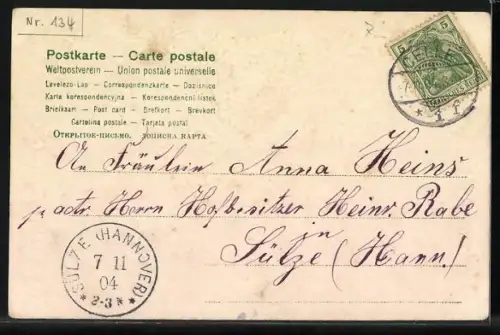 Nr. 134
Postkarte — Carte postale
Weltpostverein — Union postale universelle
Levelező-Lap — Correspondenzkarte — Dopisnice
Karta korespondencyjna — Korespondenčni listek
Briefkaart — Post card — Brefkort — Brevkort
Cartolina postale — Tarjeta postal
Открытое-письмо.
5 5
CELLE
* 1 f.
An Fräulein Anna Heins
p. adr. Herrn Hofbesitzer Heinr. Rabe
in
Sülze (Hann.)
SÜLZE (HANNOVER)
7 11
04
* 2-3 N *